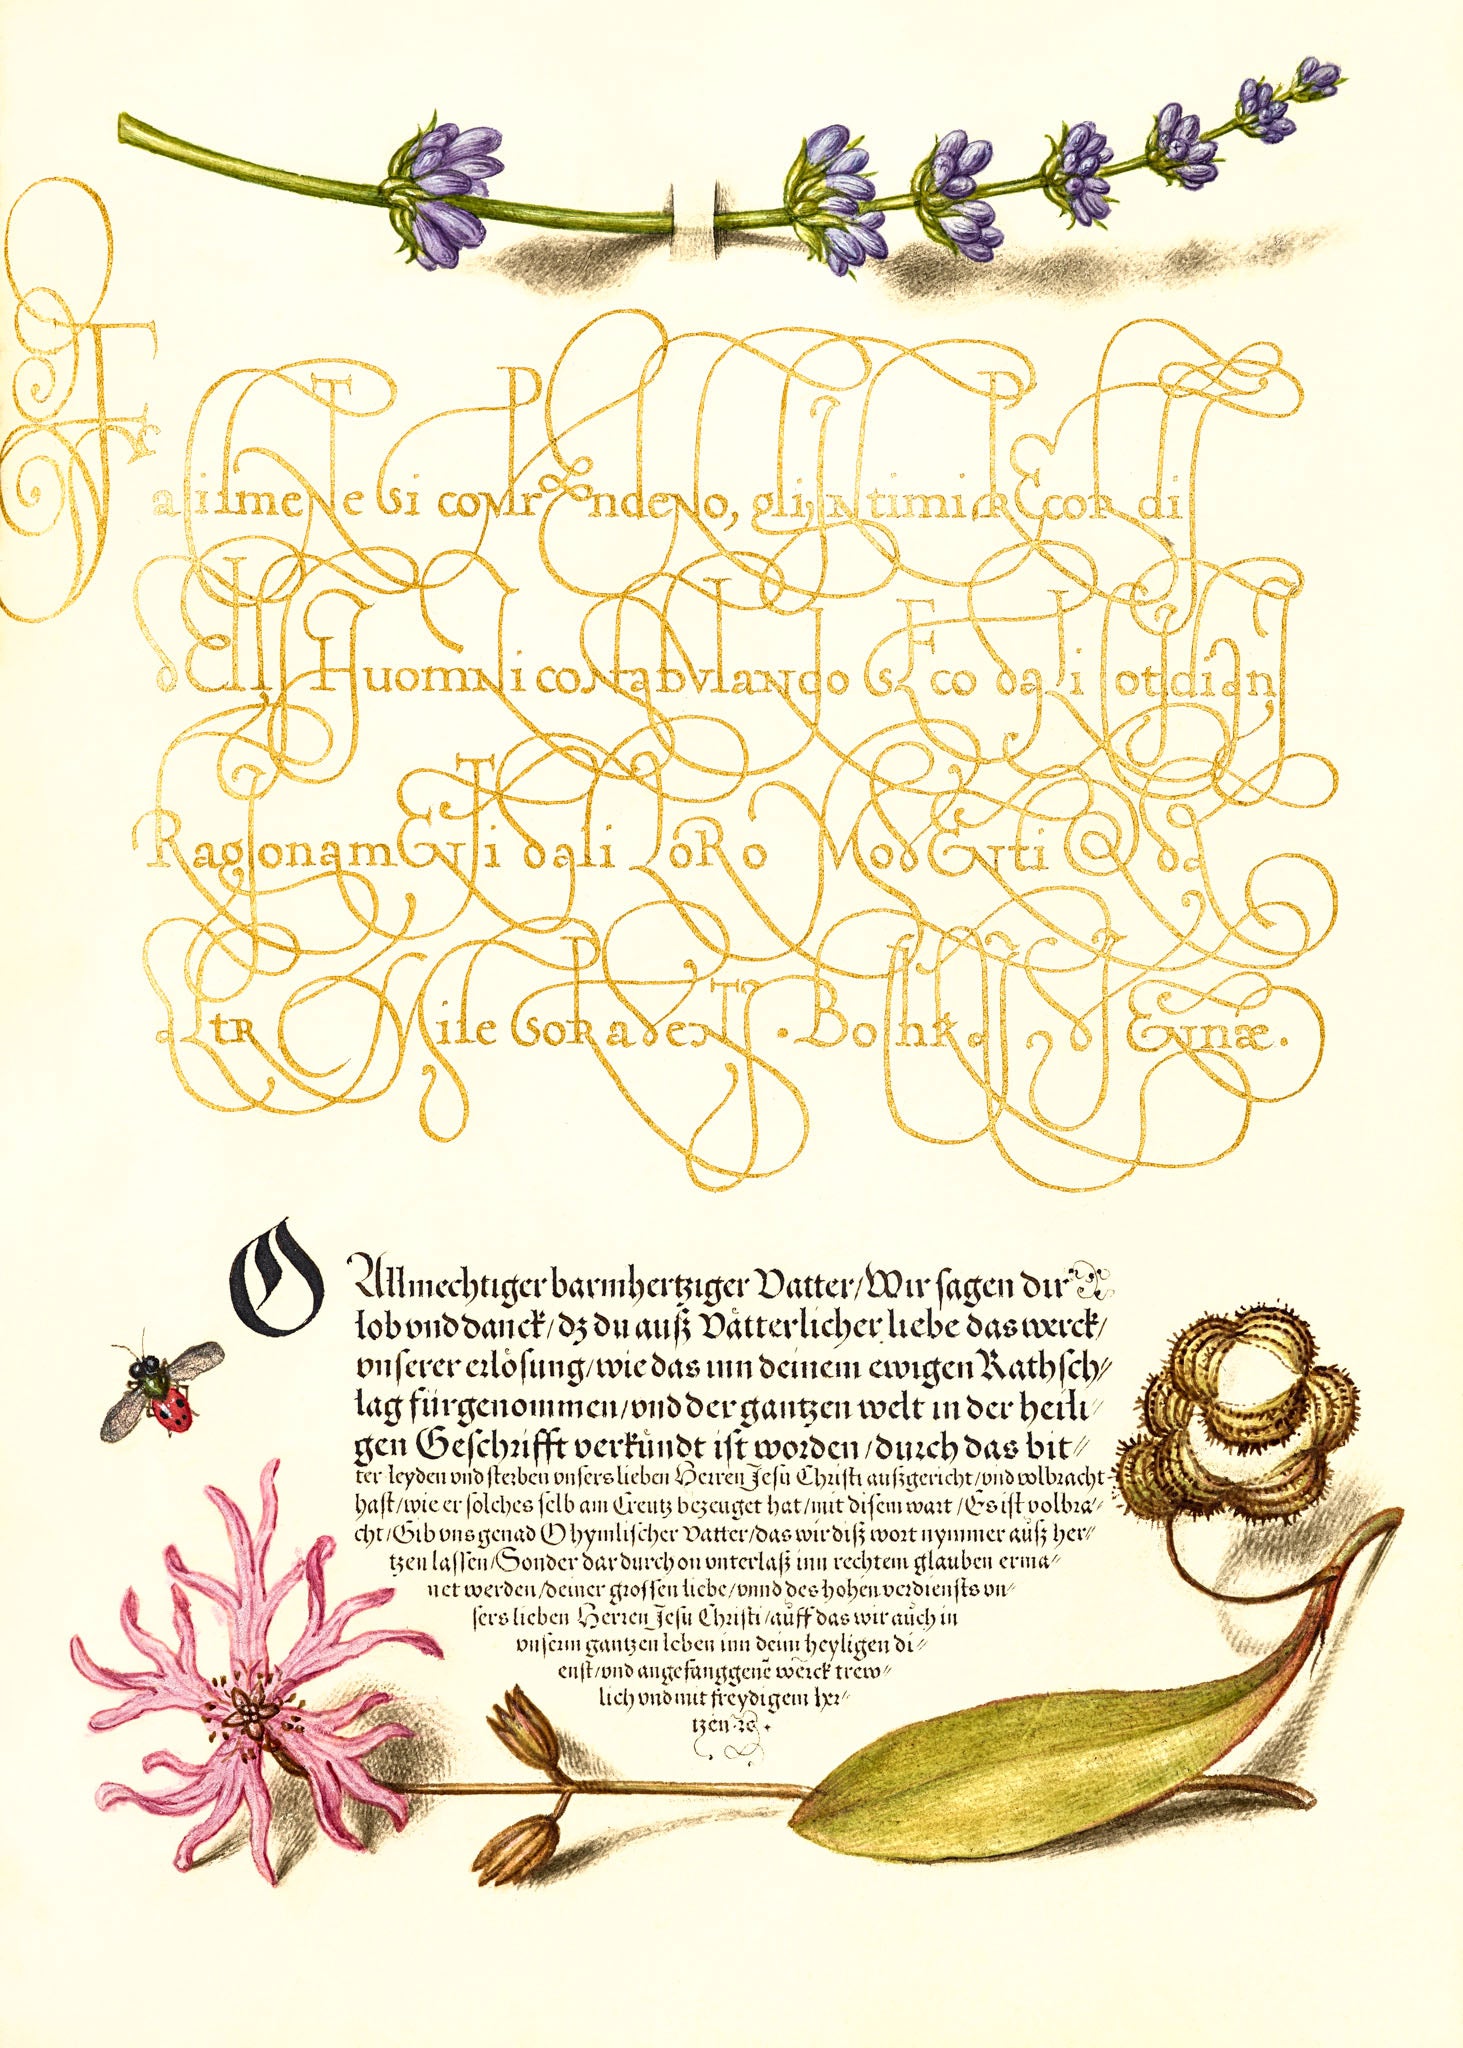 Facilmente si comprendeno, gli intimi recordi
delli Huomini confabulando seco dali cotidiani
Ragionamenti dali Loro Modenti & da
altr Mile
O Allmechtiger barmhertziger Vatter/Wir sagen dir
lob vnd danck/dz du auß Våtterlicher liebe das werck/
vnserer erlösung/wie das inn deinem ewigen Rathsch⸗
lag fürgenommen/vnd der gantzen welt in der heili⸗
gen Geschrifft verkündt ist worden/durch das bit⸗
ter leyden vnd sterben vnsers lieben Herren Jesu Christi außgericht/vnd volbracht
hast/wie er solches selb am Creutz bezeuget hat/mit disem wart/Es ist volbra⸗
cht/Gib vns genad O hymlischer Vatter/das wir diß wort nymmer auß her⸗
tzen lassen/Sonder dardurch on vnterlaß inn rechtem glauben erma⸗
net werden/deiner grossen liebe/vnnd des hohen verdiensts vn⸗
sers lieben Herren Jesu Christi/auff das wir auch in
vnserm gantzen leben inn deim heyligen di⸗
enst/vnd angefanggenē werck trew⸗
lich vnd mit freydigem her⸗
tzen ꝛc.